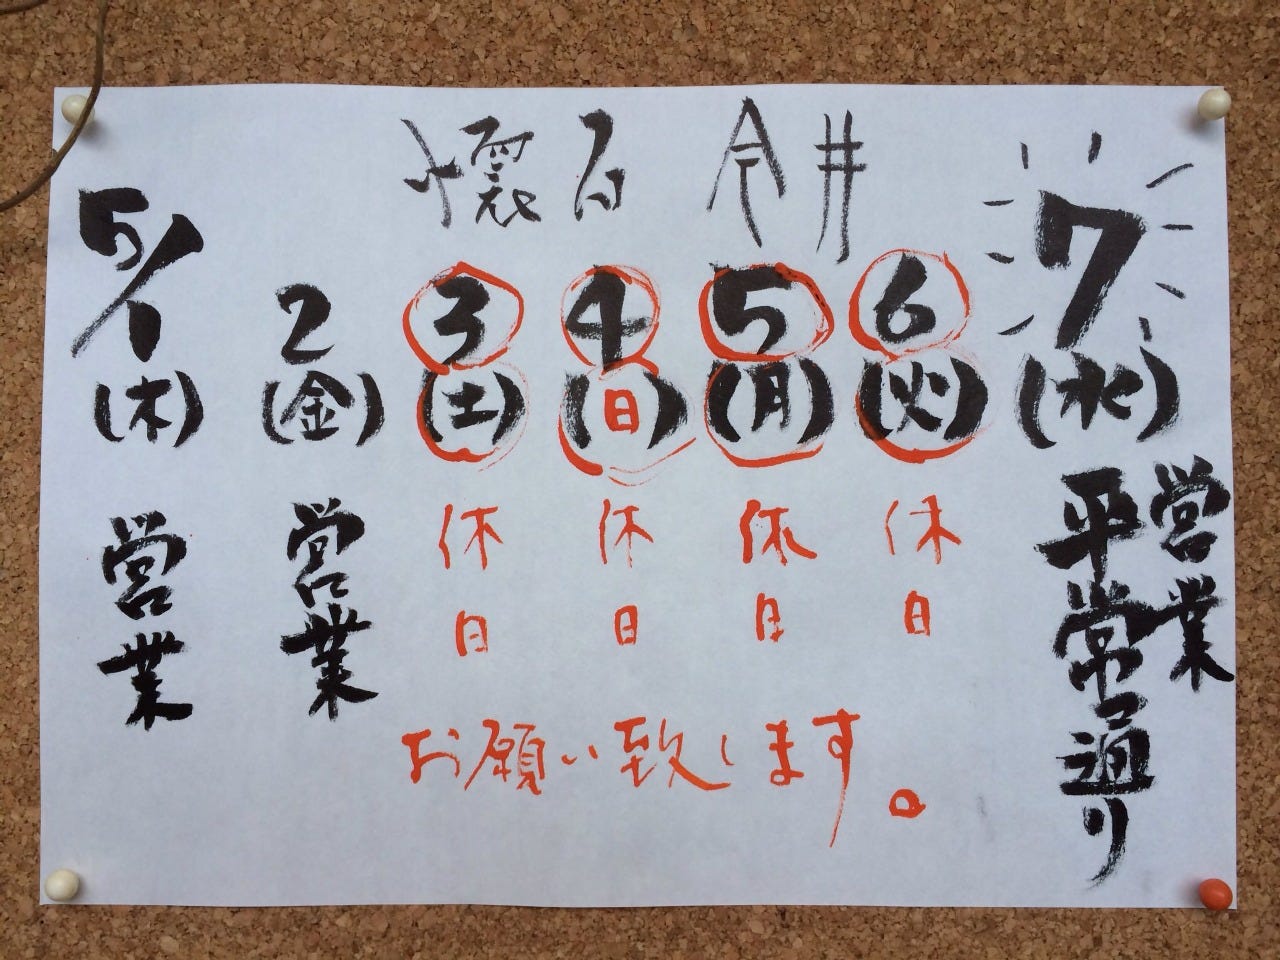 懐石 今井
5/1 2 3 4 5 6 7
(木) (金) (土) (日) (月) (火) (水)
営業 営業 休日 休日 休日 休日 営業
平常通り
お願い致します。